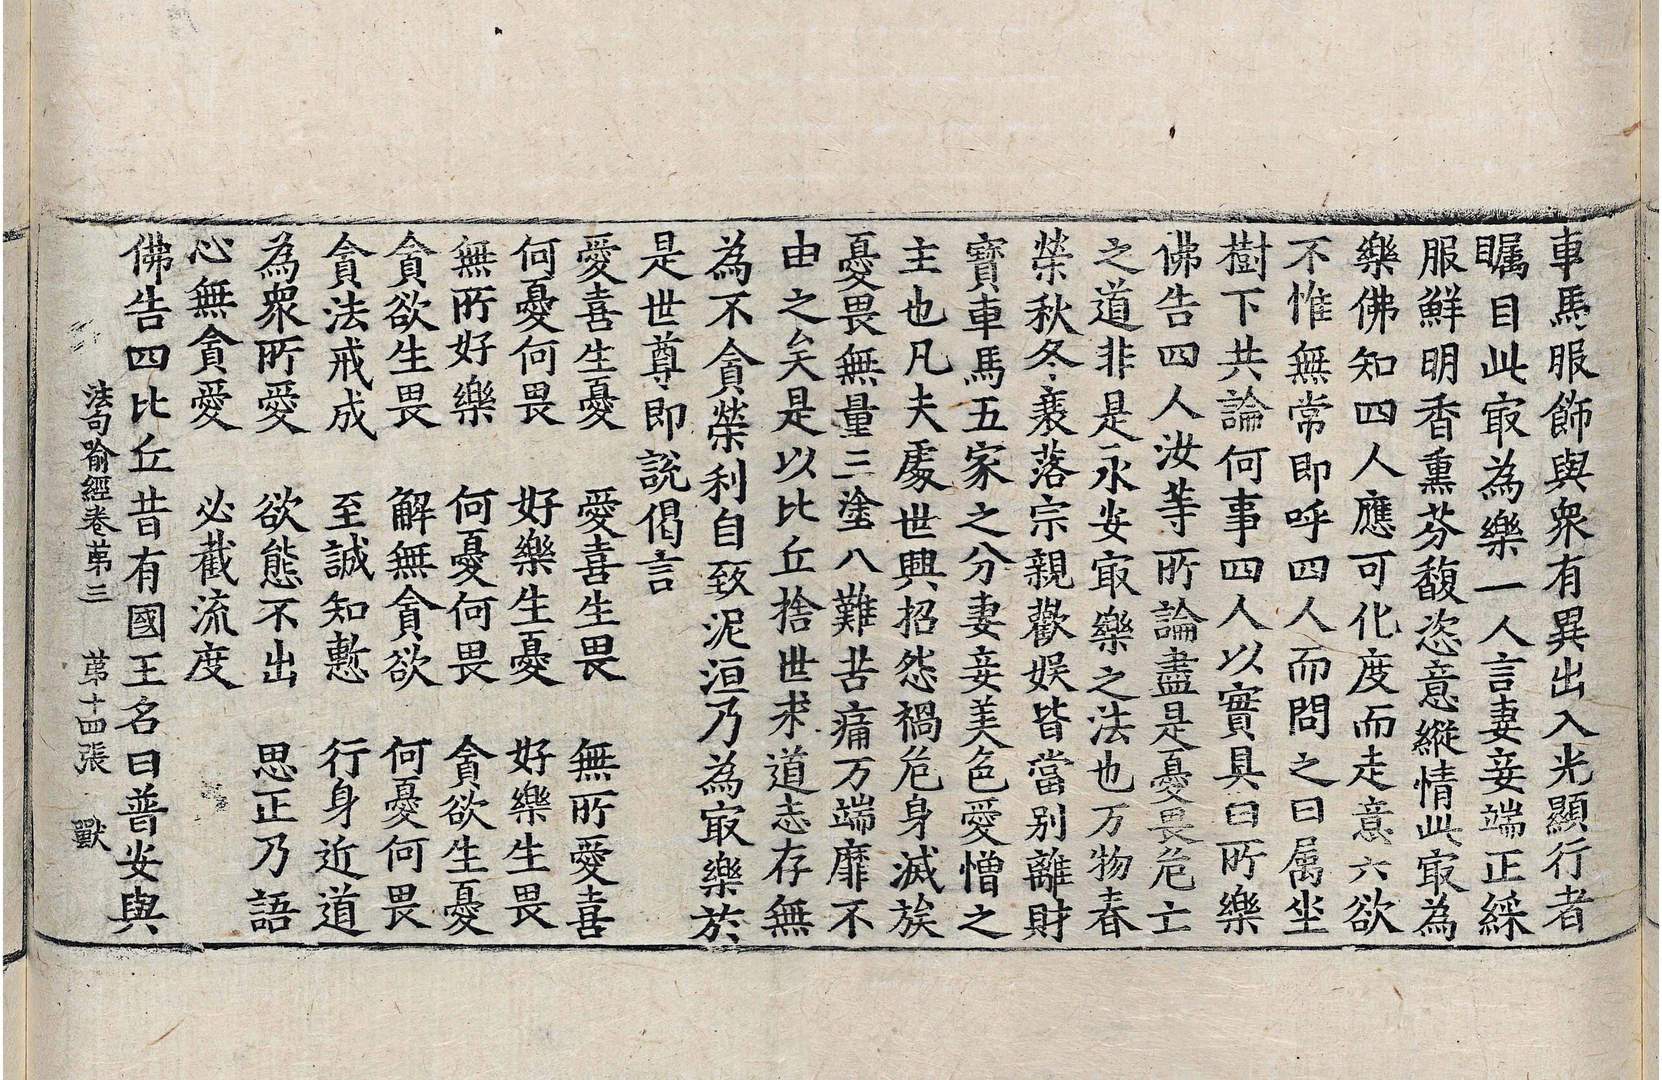 車馬服飾與衆有異出入光顯行者
矚目此㝡為樂一人言妻妾端正綵
服鮮明香熏芬馥恣意縱情此㝡為
樂佛知四人應可化度而走意六欲
不惟無常即呼四人而問之曰属坐
樹下共論何事四人以實具曰所樂
佛告四人汝等所論盡是憂畏危亡
之道非是永安㝡樂之法也万物春
榮秋冬衰落宗親歡娱皆當別離財
寶車馬五家之分妻妾美色愛憎之
主也凡夫處世興招怨禍危身滅族
憂畏無量三塗八難苦痛万端靡不
由之矣是以比丘捨世求道志存無
為不貪榮利自致泥洹乃為㝡樂於
是世尊即說偈言
愛喜生憂　愛喜生畏　無所愛喜
何憂何畏　好樂生憂　好樂生畏
無所好樂　何憂何畏　貪欲生憂
貪欲生畏　解無貪欲　何憂何畏
貪法戒成　至誠知慙　行身近道
為衆所愛　欲態不出　思正乃語
心無貪愛　必截流度
佛告四比丘昔有國王名曰普安與
法句喻經卷苐三　苐十四張　獸